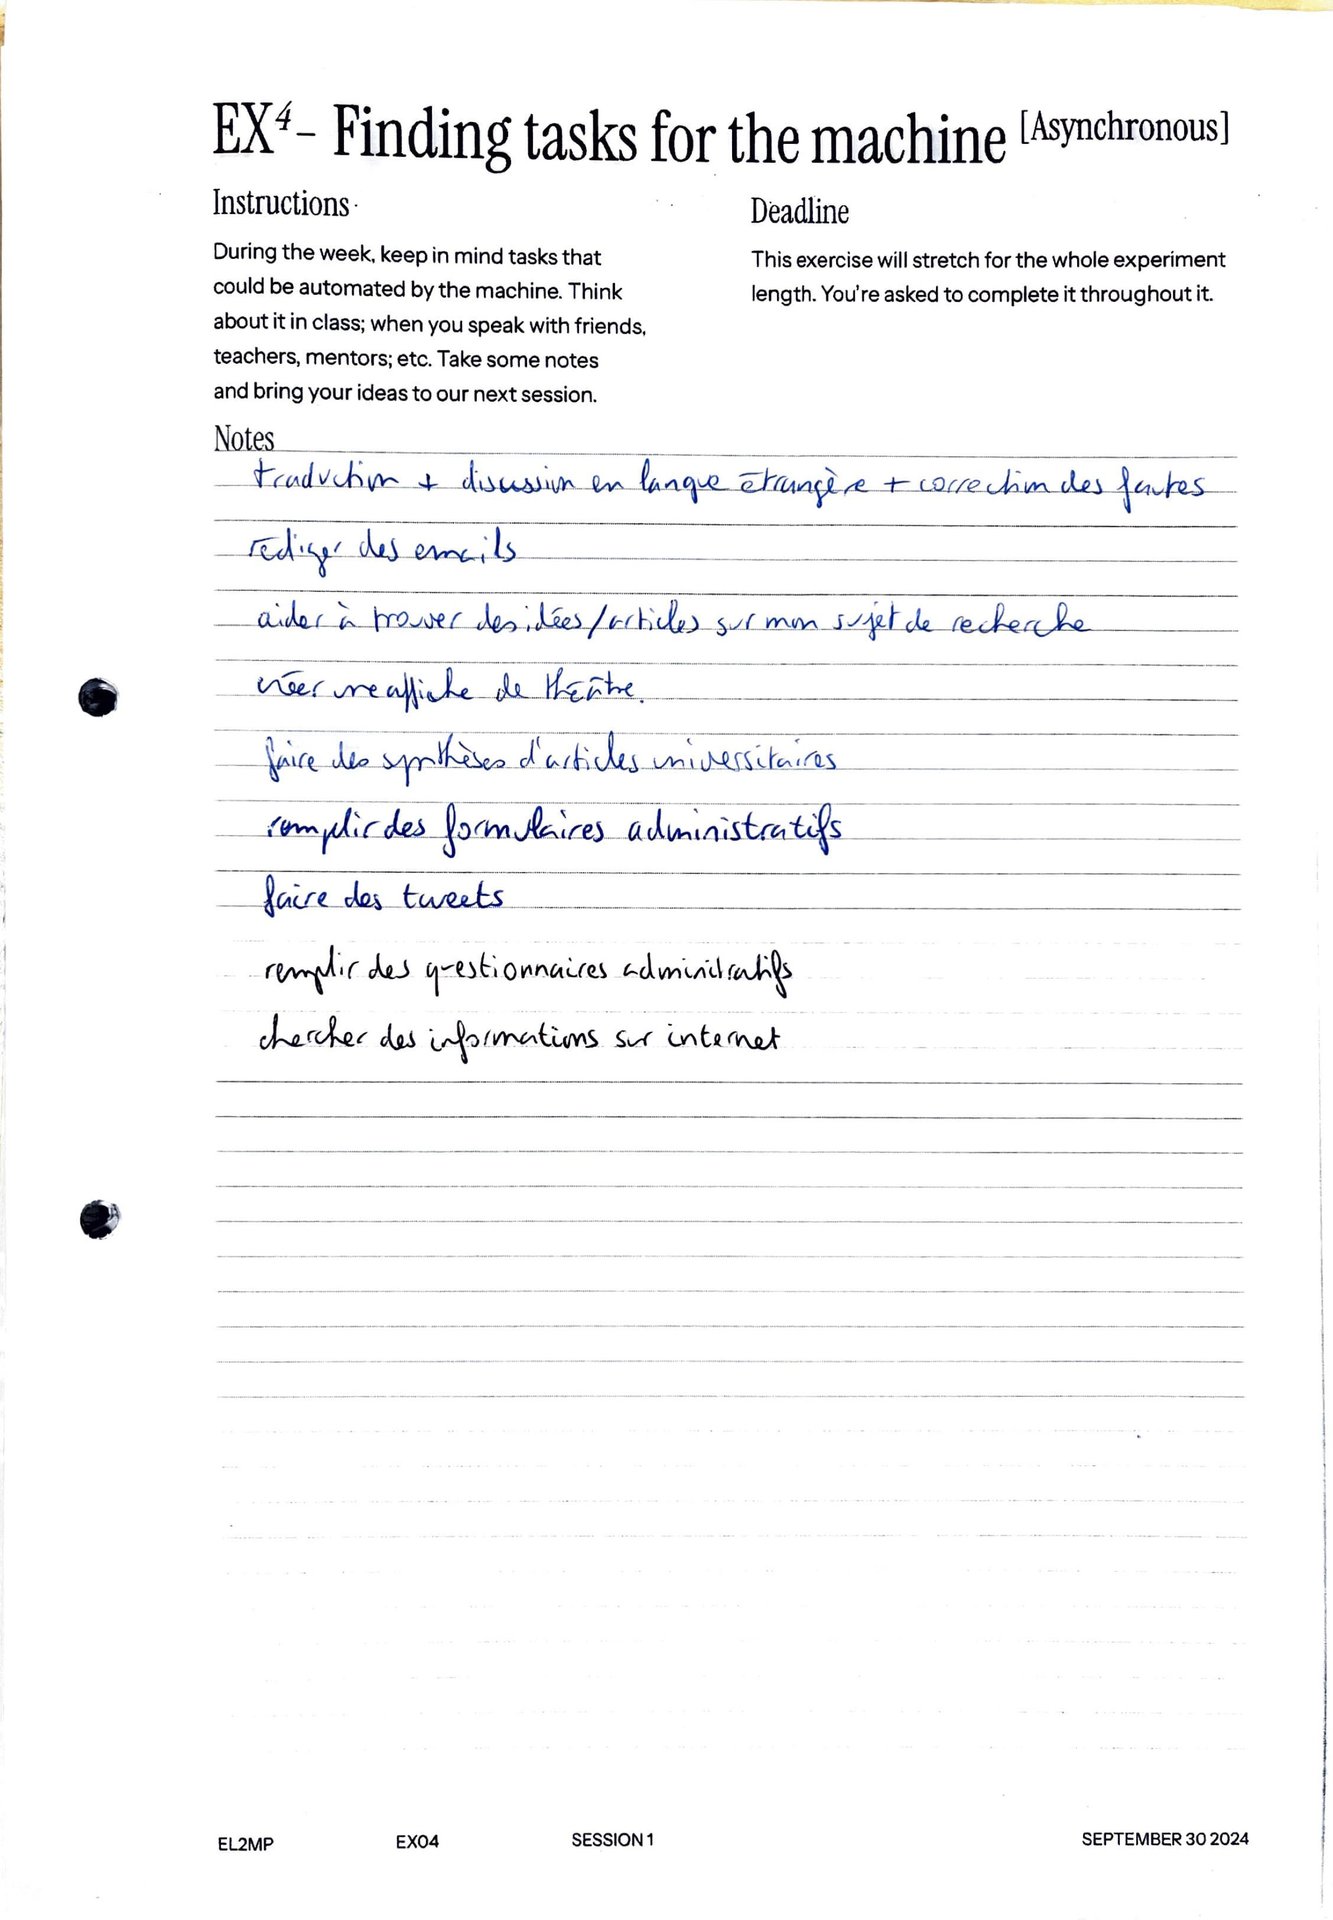 EX4 - Finding tasks for the machine [Asynchronous]
Instructions
During the week, keep in mind tasks that
could be automated by the machine. Think
about it in class; when you speak with friends,
teachers, mentors; etc. Take some notes
and bring your ideas to our next session.
Deadline
This exercise will stretch for the whole experiment
length. You're asked to complete it throughout it.
Notes
traduction + discussion en langue étrangère + correction des fautes
rédiger des emails
aider à trouver des idées/articles sur mon sujet de recherche
créer une affiche de théâtre.
faire des synthèses d'articles universitaires
remplir des formulaires administratifs
faire des tweets
remplir des questionnaires administratifs
chercher des informations sur internet
EL2MP EX04 SESSION 1 SEPTEMBER 30 2024